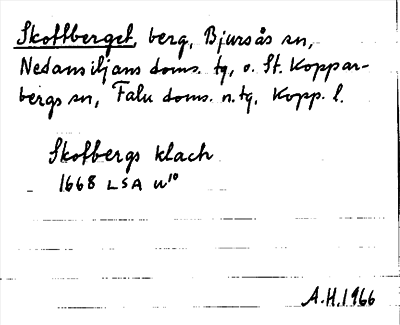 Skottberget, berg, Bjursås sn,
Nedansiljans doms. tg, o. St. Koppar-
bergs sn, Falu doms. n. tg, Kopp. l.
Skotbergs klach
1668 LSA u¹⁰
A.H. 1966